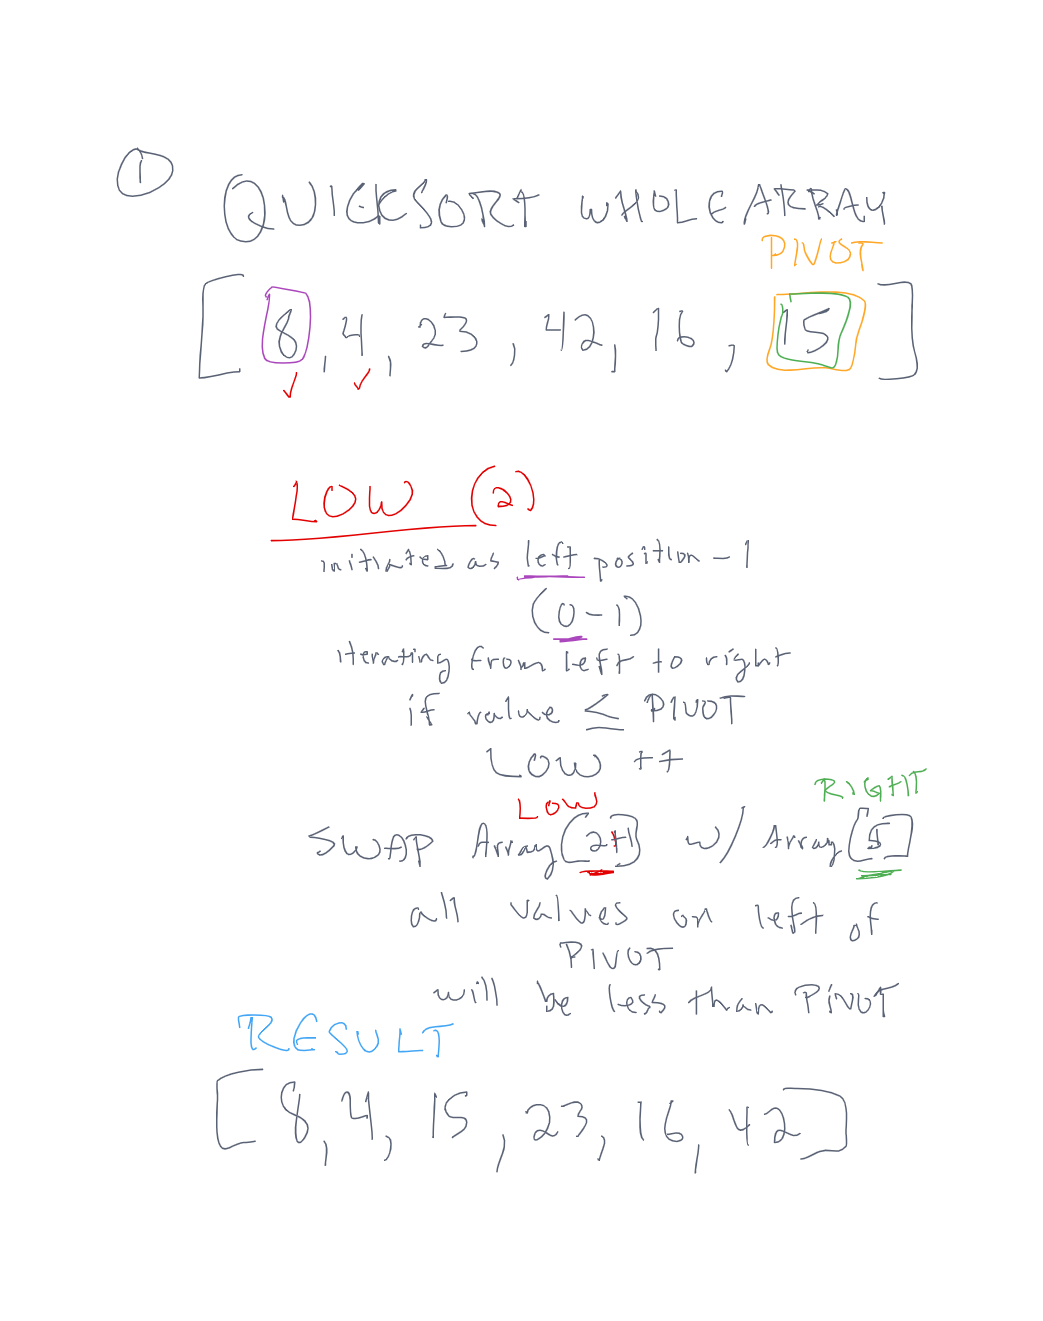 1
QUICKSORT WHOLE ARRAY
PIVOT
[ 8, 4, 23, 42, 16, 15 ]
✓ ✓
LOW (2)
initiated as left position - 1
(0-1)
iterating from left to right
if value ≤ PIVOT
LOW ++
LOW RIGHT
SWAP Array[2+1] w/ Array[5]
all values on left of
PIVOT
will be less than PIVOT
RESULT
[8, 4, 15, 23, 16, 42]